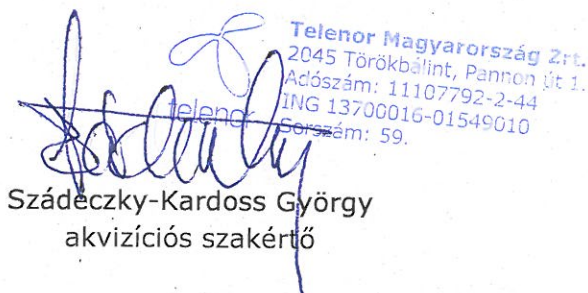 Telenor Magyarország Zrt.
2045 Törökbálint, Pannon út 1.
Adószám: 11107792-2-44
ING 13700016-01549010
Sorszám: 59.
telenor
Szádeczky-Kardoss György
akvizíciós szakértő